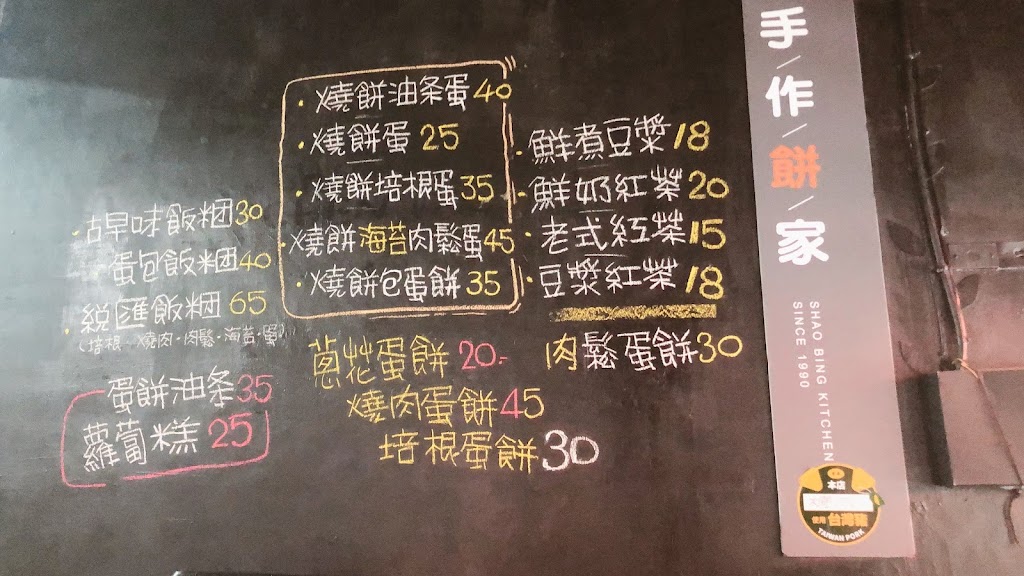 燒餅油条蛋40
燒餅蛋 25
燒餅培根蛋35
燒餅海苔肉鬆蛋45
燒餅包蛋餅35
鮮煮豆漿18
鮮奶紅茶20
老式紅茶15
豆漿紅茶18
古早味飯糰30
蛋包飯糰40
綜匯飯糰65
(培根·燒肉·肉鬆·海苔·蛋)
蛋餅油条35
蘿蔔糕25
蔥花蛋餅20.-
燒肉蛋餅45
培根蛋餅30
肉鬆蛋餅30
手/作/餅/家
SHAO BING KITCHEN
SINCE 1990
本店
使用台灣豬
TAIWAN PORK